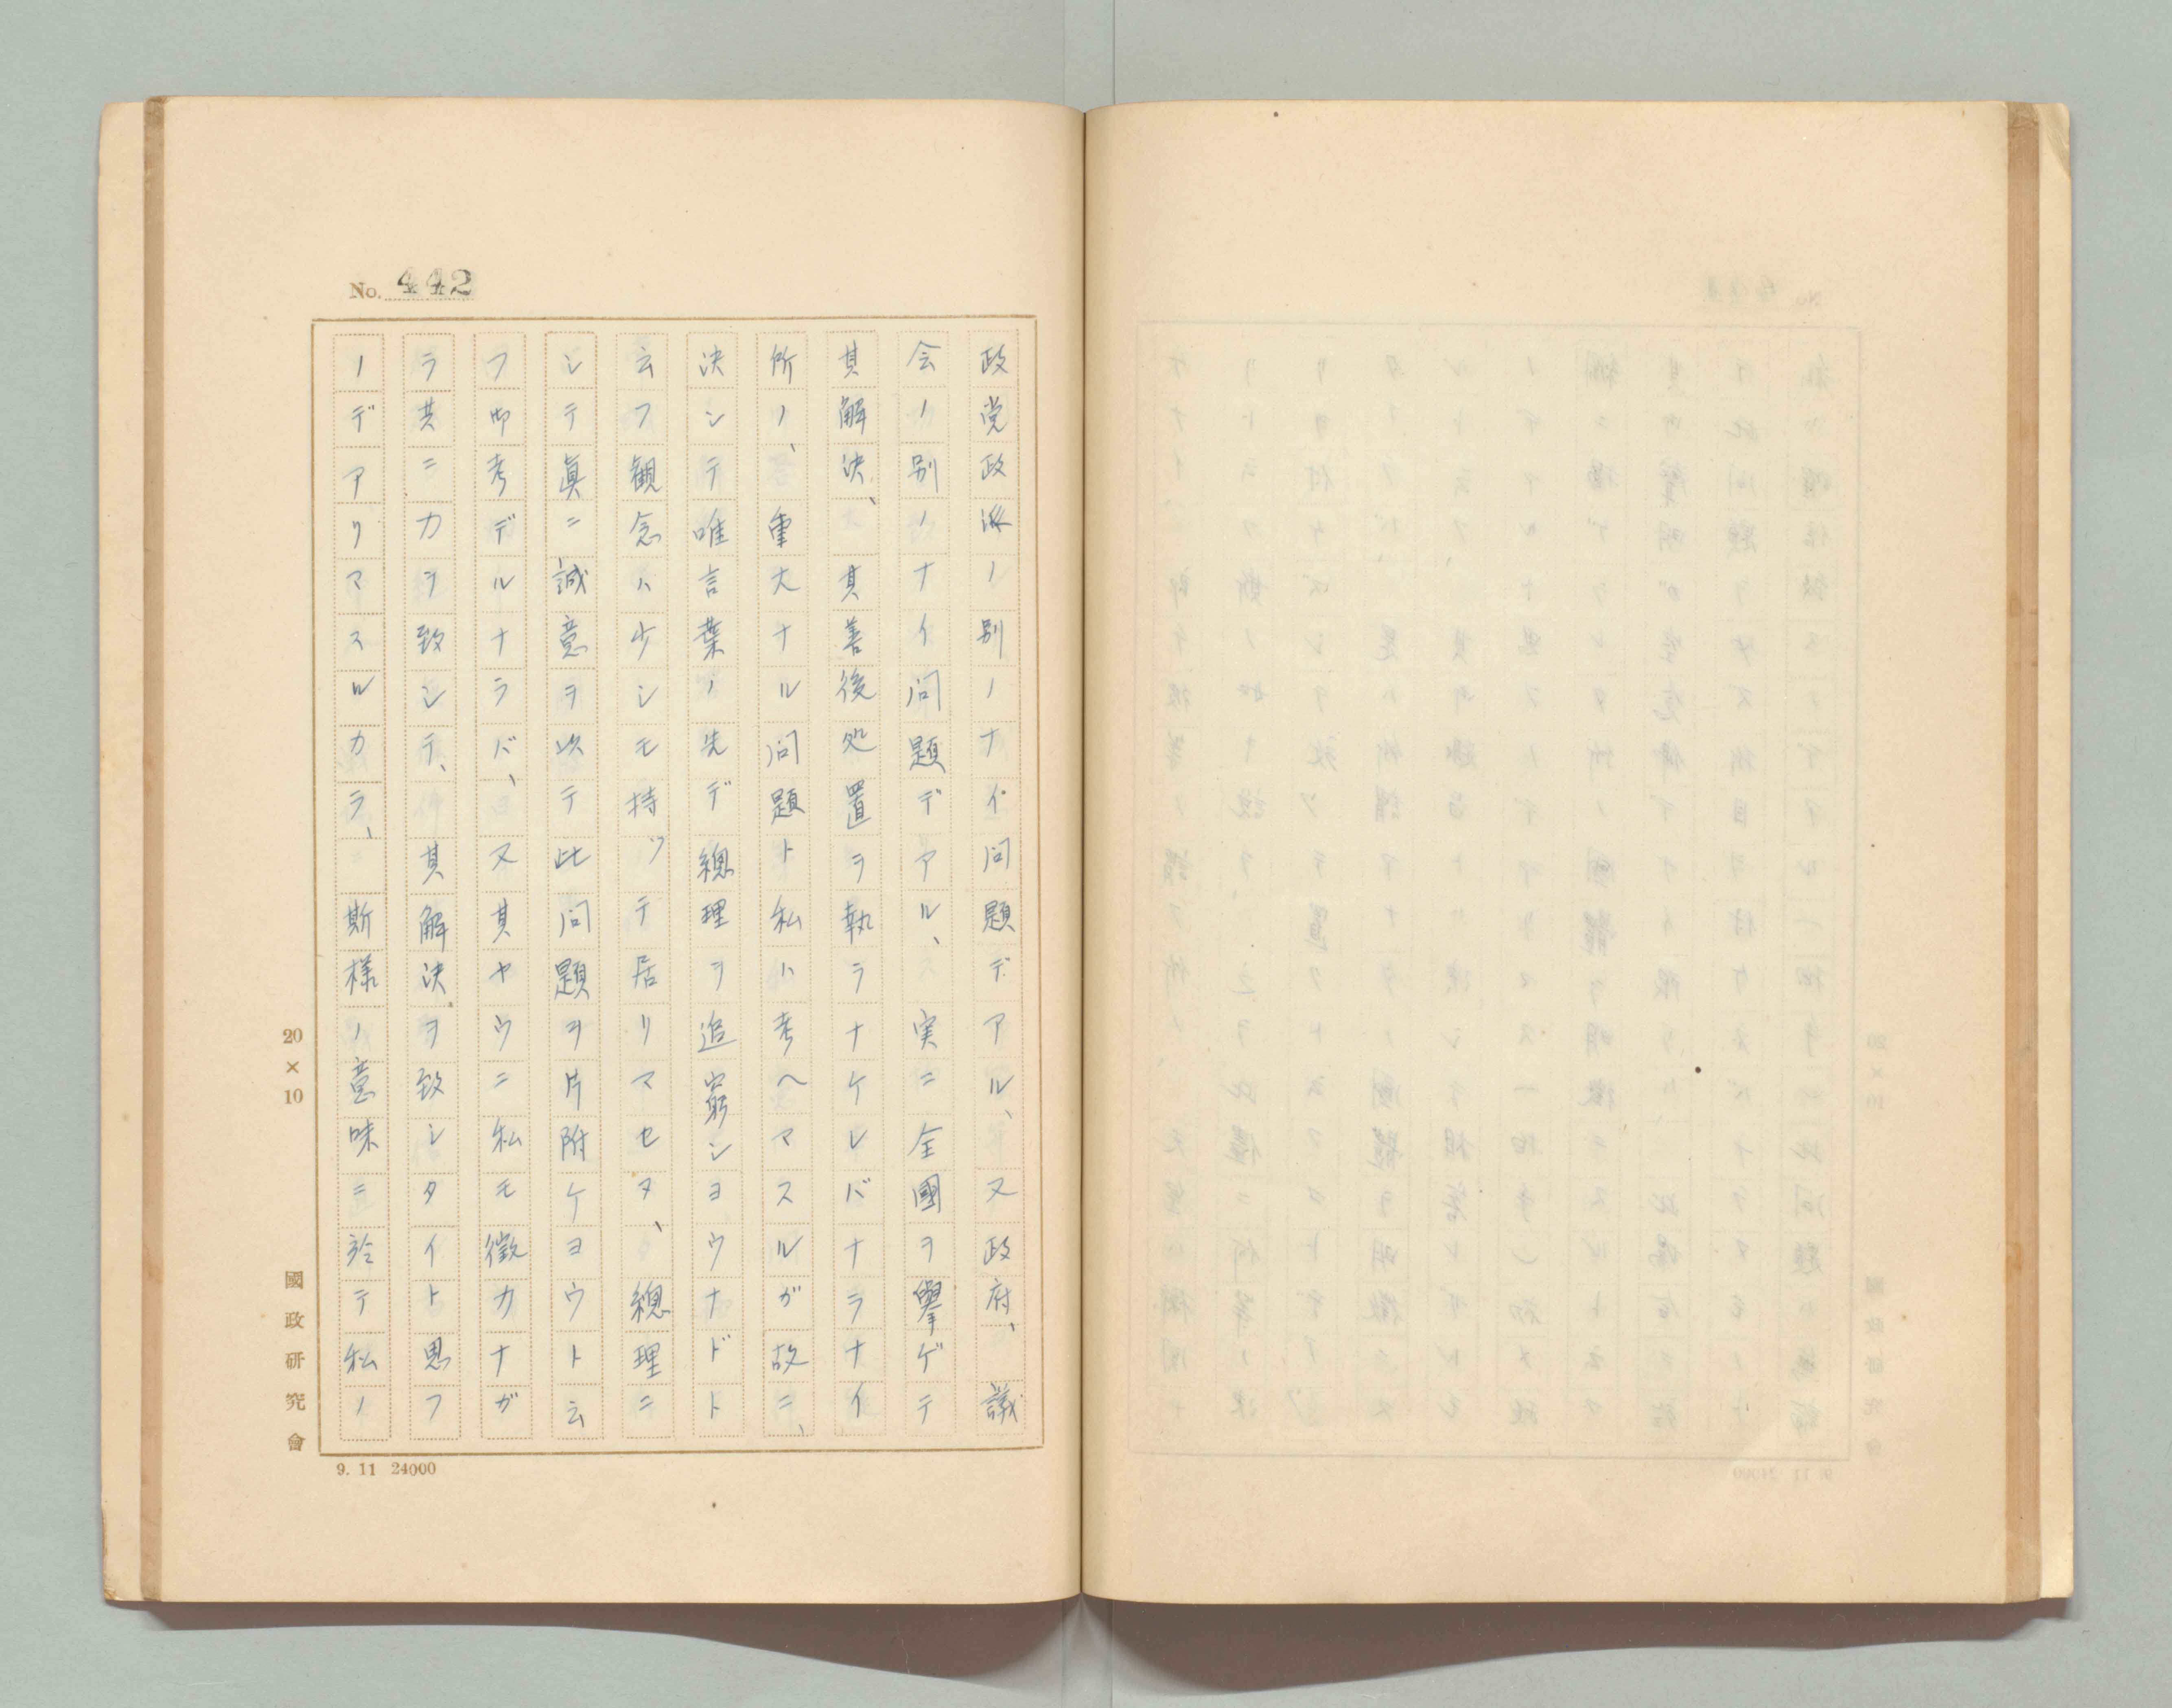 No. 442
政党政派ノ別ノナイ問題デアル、又政府、議
会ノ別ノナイ問題デアル、実ニ全國ヲ擧ゲテ
其解決、其善後処置ヲ執ラナケレバナラナイ
所ノ、重大ナル問題ト私ハ考ヘマスルガ故ニ、
決シテ唯言葉ノ先デ總理ヲ追窮ショウナドト
云フ観念ハ少シモ持ッテ居リマセヌ、總理ニ
シテ眞ニ誠意ヲ以テ此問題ヲ片附ケヨウト云
フ御考デルナラバ、又其ヤウニ私モ微力ナガ
ラ共ニ力ヲ致シテ、其解決ヲ致シタイト思フ
ノデアリマスルカラ、斯様ノ意味ニ於テ私ノ
20×10
國政研究會
9. 11 24000